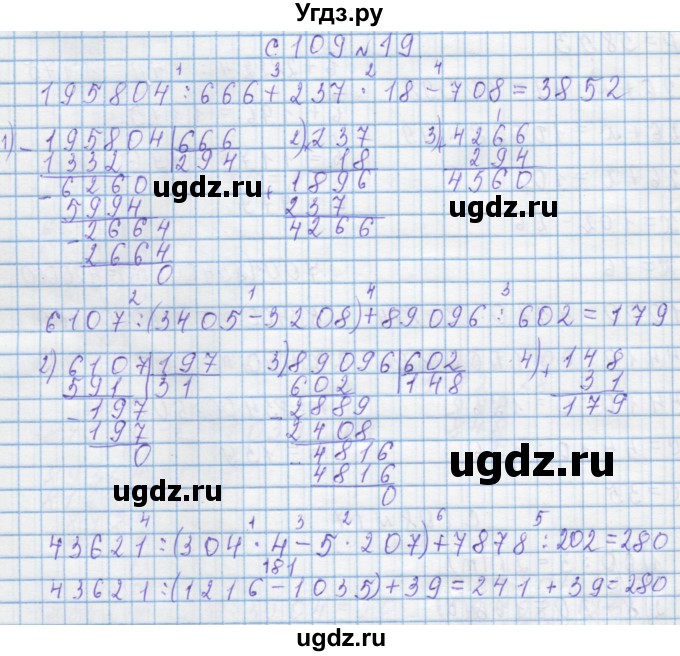 Угдз.ру
с 109 № 19
1 3 2 4
195804 : 666 + 237 · 18 - 708 = 3852
1) - 195804 | 666 2) × 237 3) + 4266
1332 | 294 18 294
- 6260 + 1896 4560
5994 237
- 2664 4266
2664
0
ugdz.ru ugdz.ru
2 1 4 3
6107 : (3405 - 3208) + 89096 : 602 = 179
2) 6107 | 197 3) 89096 | 602 4) + 148
591 | 31 602 | 148 31
- 197 - 2889 179
197 2408
0 - 4816
4816
0
ugdz.ru ugdz.ru
4 1 3 2 6 5
43621 : (304 · 4 - 5 · 207) + 7878 : 202 = 280
181
43621 : (1216 - 1035) + 39 = 241 + 39 = 280
ugdz.ru